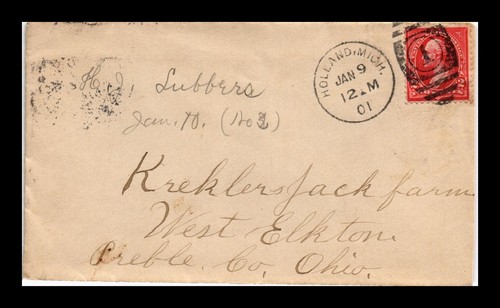 H. J. Lubbers
Jan. 10. (No 2)
HOLLAND, MICH.
JAN 9
12 M
01
Kreklers Jack farm
West Elkton
Preble. Co. Ohio.